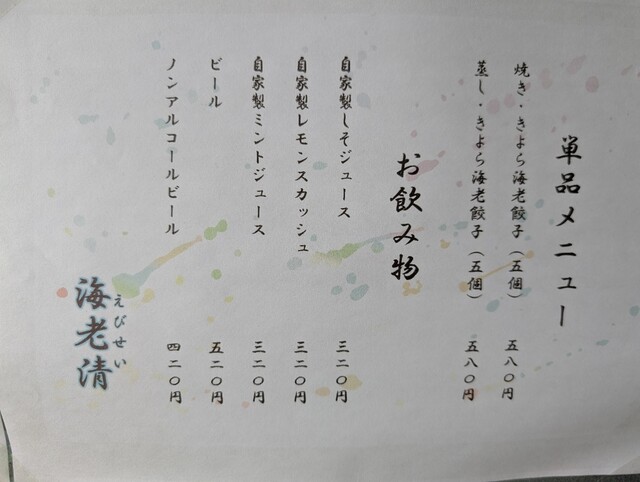 単品メニュー
焼き・きよら海老餃子（五個） 五八〇円
蒸し・きよら海老餃子（五個） 五八〇円
お飲み物
自家製しそジュース 三二〇円
自家製レモンスカッシュ 三二〇円
自家製ミントジュース 三二〇円
ビール 五二〇円
ノンアルコールビール 四二〇円
えびせい
海老清